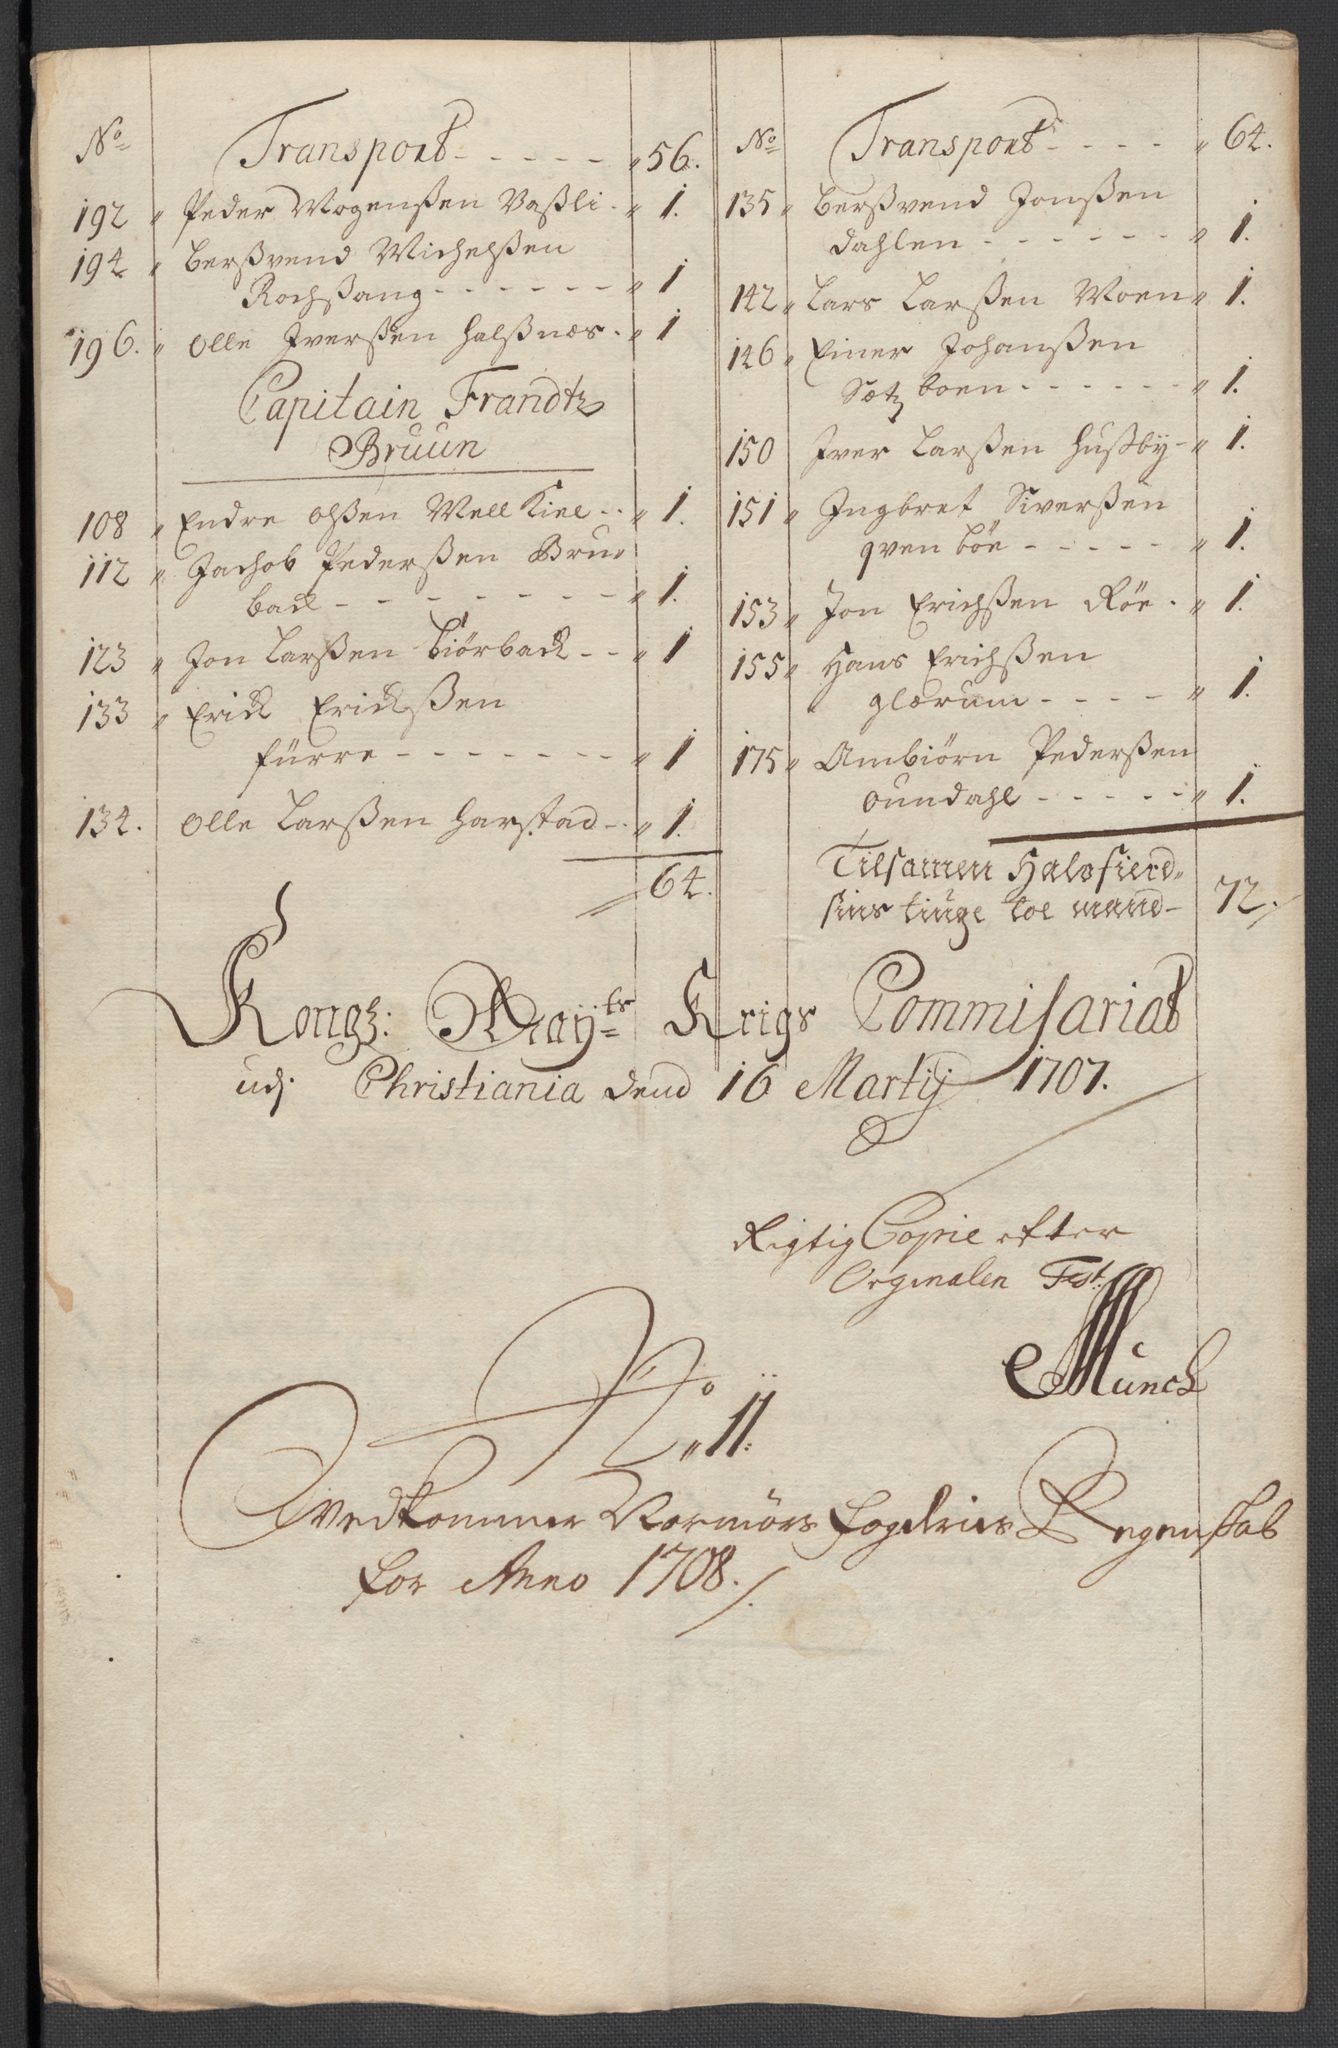 No Transport - - - - - " 56.
192 " Peder Mogenßen Vaßli - " 1.
194 " Berßvend Michelßen
Rochßang - - - - - - " 1
196. " Olle Iverßen Halßnæs . " 1
Capitain Frandtz
Bruun
108 " Endre Olßen Mellkiel - . " 1.
112 " Jachob Pederßen Bru"
back - - - - - - - " 1.
123 " Jon Larßen Biörback - - " 1
133 " Erick Erickßen
fürre - - - - - - - " 1
134. Olle Larßen Harstad - . " 1.
64.
No Transport - - - - " 64.
135 " Berßvend Jonßen
Dahlen - - - - - - " 1.
142 " Lars Larßen Moen " 1.
146 " Einer Johanßen
Sætzboen - - - - - - " 1.
150 Iver Larßen Hußby - " 1.
151 " Ingbret Siverßen
qvenböe - - - - - " 1.
153 " Jon Erichßen Röe . " 1.
155 " Hans Erichßen
glærum - - - - " 1.
175 " Ambiörn Pederßen
oundahl - - - - - " 1.
Tilsamen Halvfierd"
sins tiuge toe mand - 72./
Kongz: Mayts Krigs Commisariat
udj Christiania dend 16 Martij 1707.
Rigtig Copie efter
Orginalen Test.
Münch
No " 11:
Vedkommer Normörs fogdries Regenskab
for Anno 1708./.